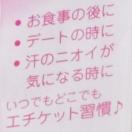 • お食事の後に
• デートの時に
• 汗のニオイが
気になる時に
いつでもどこでも
エチケット習慣♪